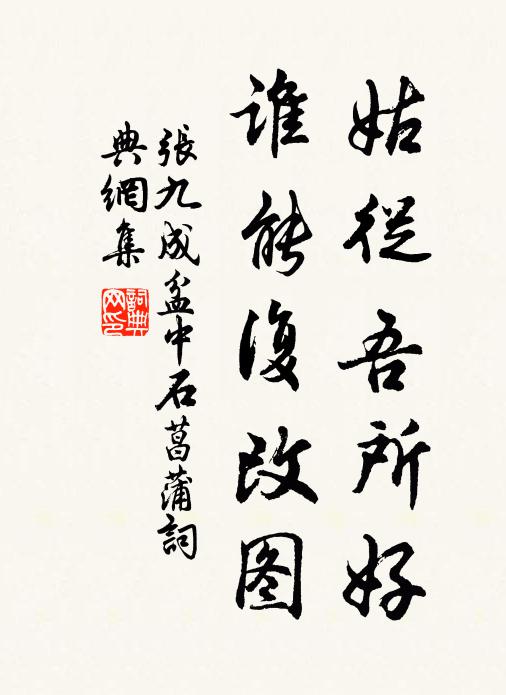 姑從吾所好
谁能復改图
張九成盆中石菖蒲詞
典網集
詞典网印